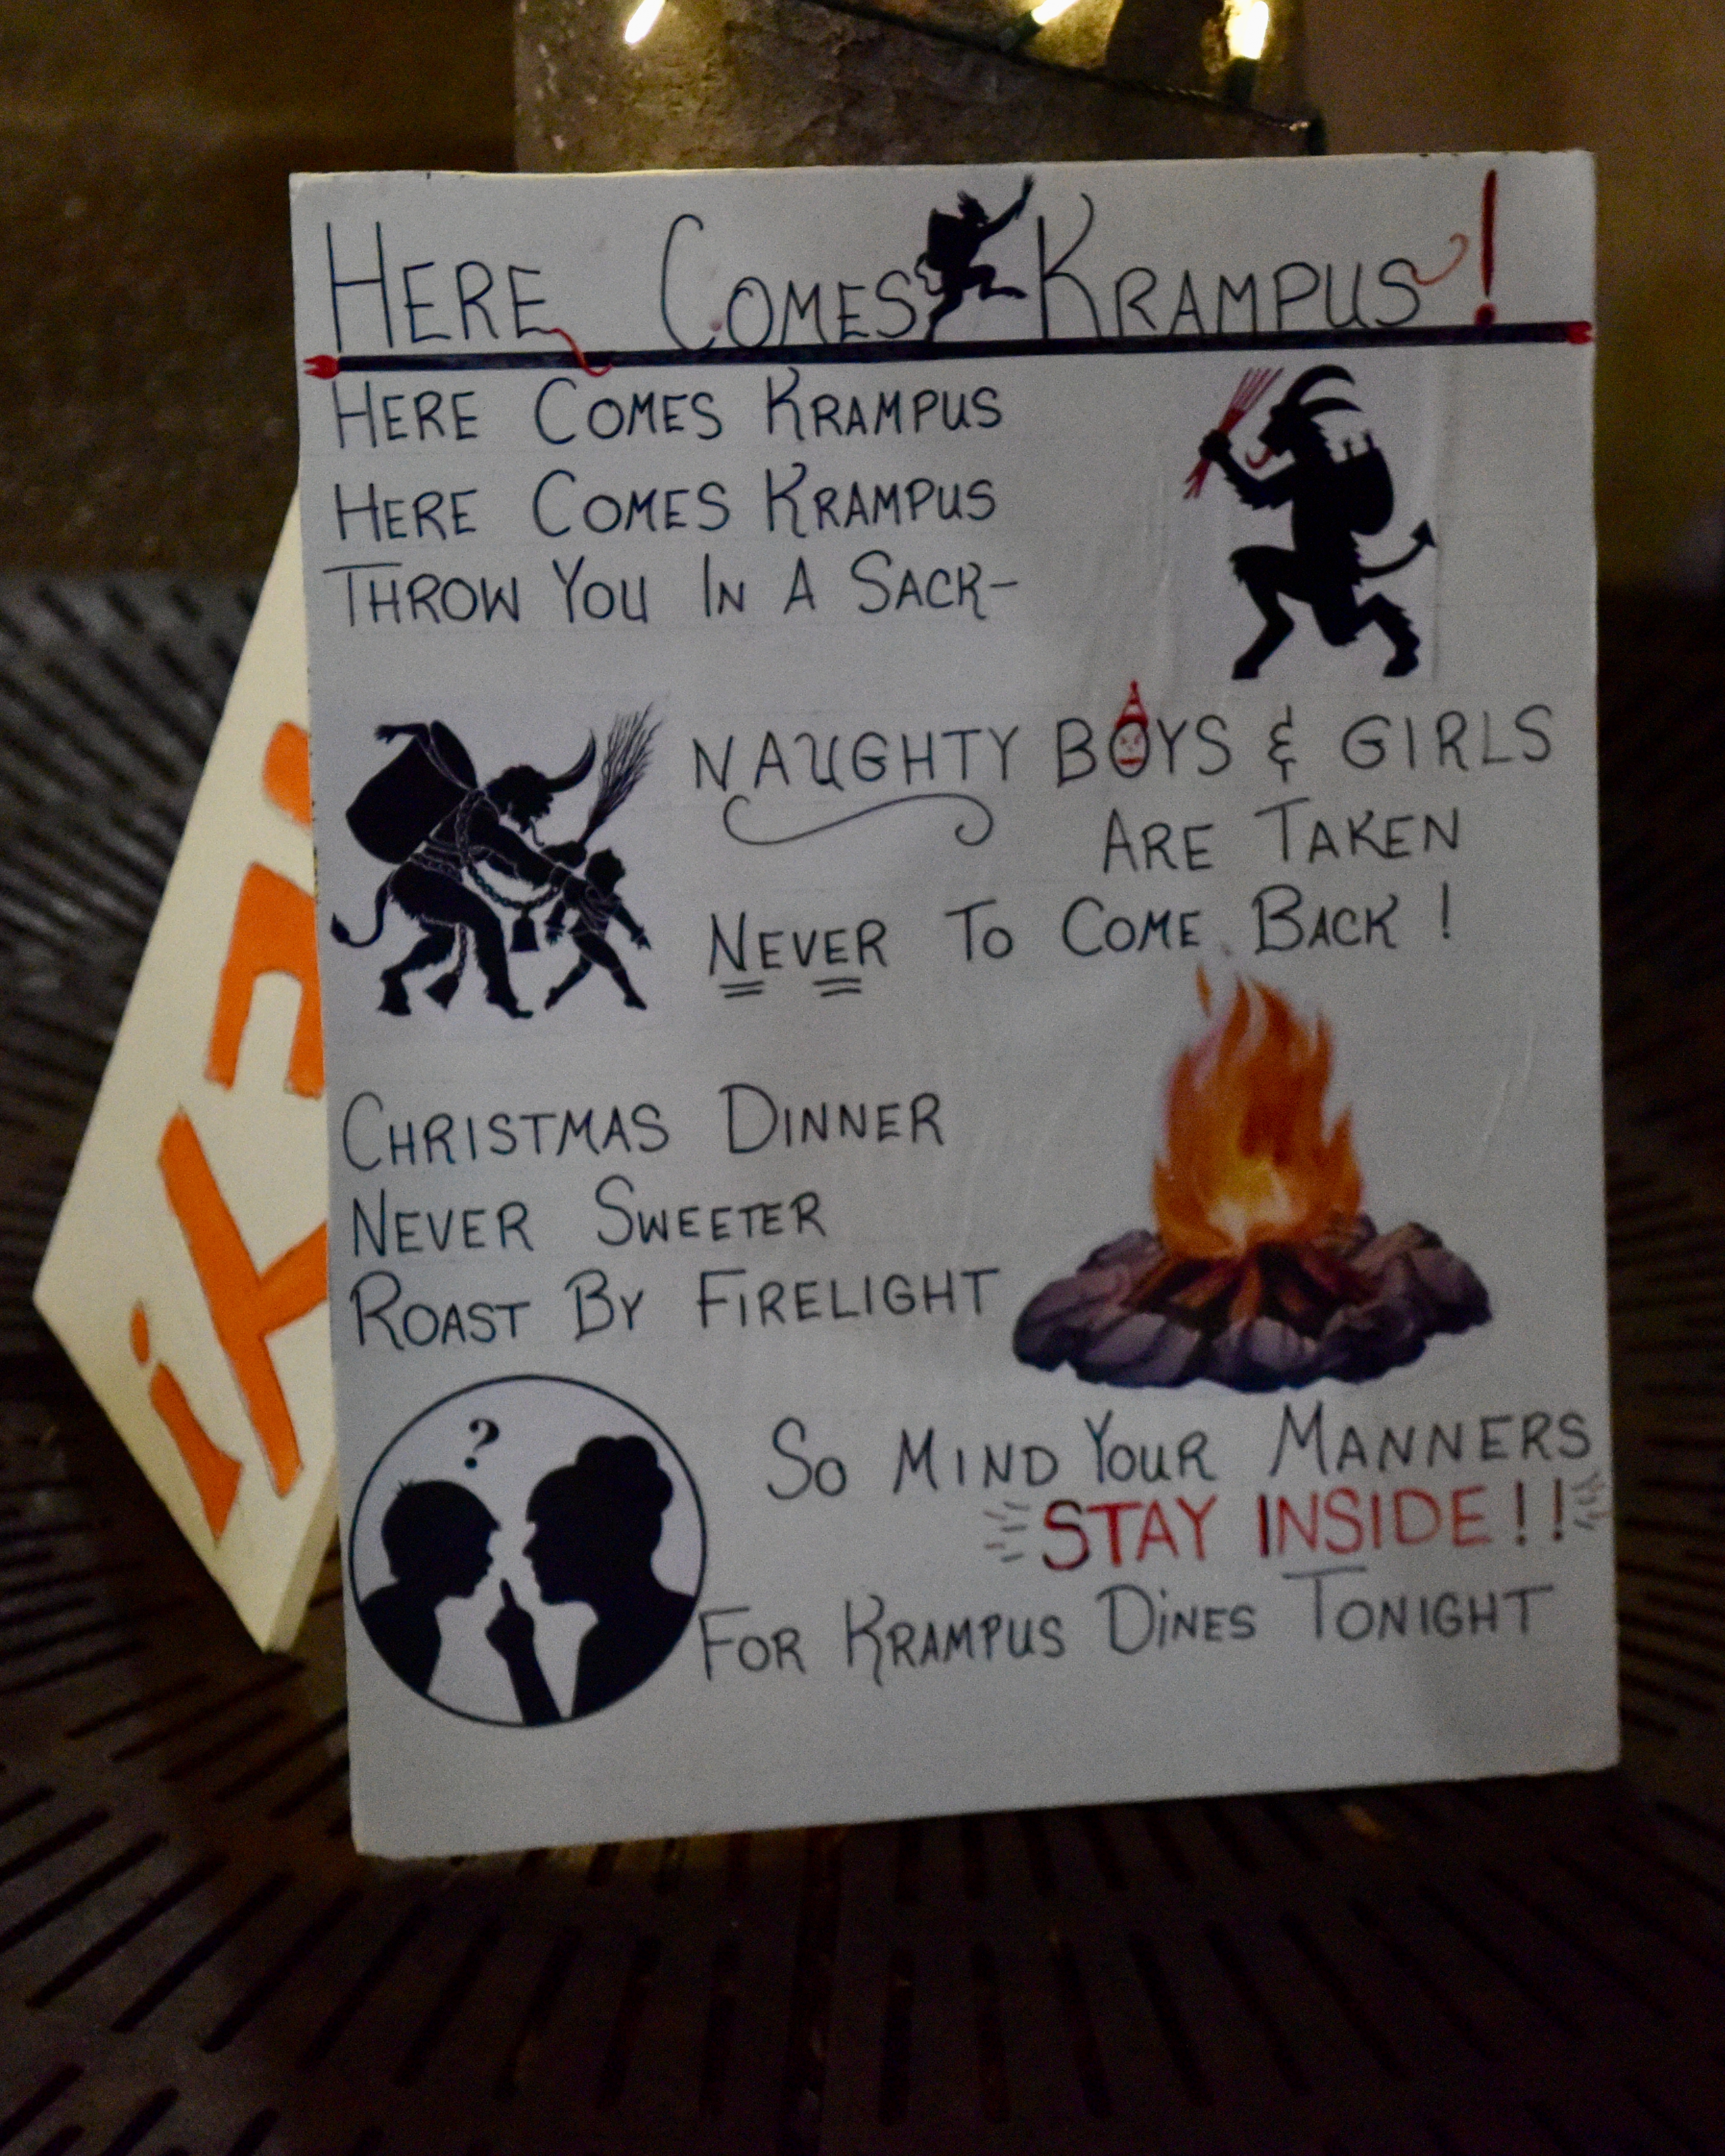 HERE COMES KRAMPUS!
HERE COMES KRAMPUS
HERE COMES KRAMPUS
THROW YOU IN A SACK-
NAUGHTY BOYS & GIRLS
ARE TAKEN
NEVER TO COME BACK!
CHRISTMAS DINNER
NEVER SWEETER
ROAST BY FIRELIGHT
?
SO MIND YOUR MANNERS
STAY INSIDE!!
FOR KRAMPUS DINES TONIGHT